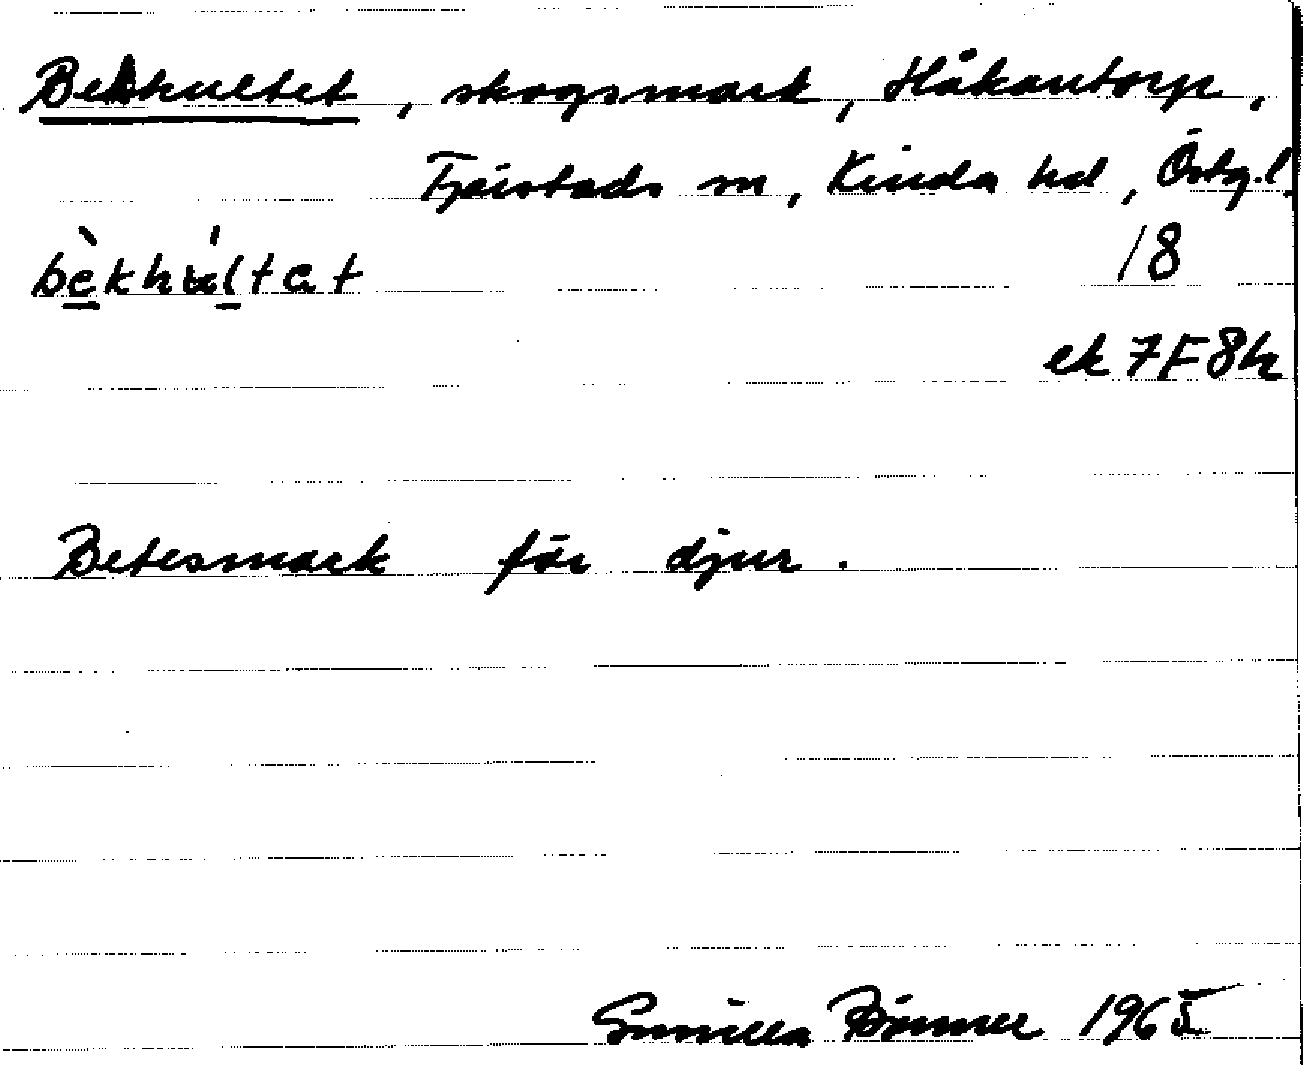 Bekhultet, skogsmark, Håkantorp,
Tjärstads sn, Kinda hd, Östg.l.
bèkhúltat 18
ek 7F8h
Betesmark för djur.
Gunilla 1965